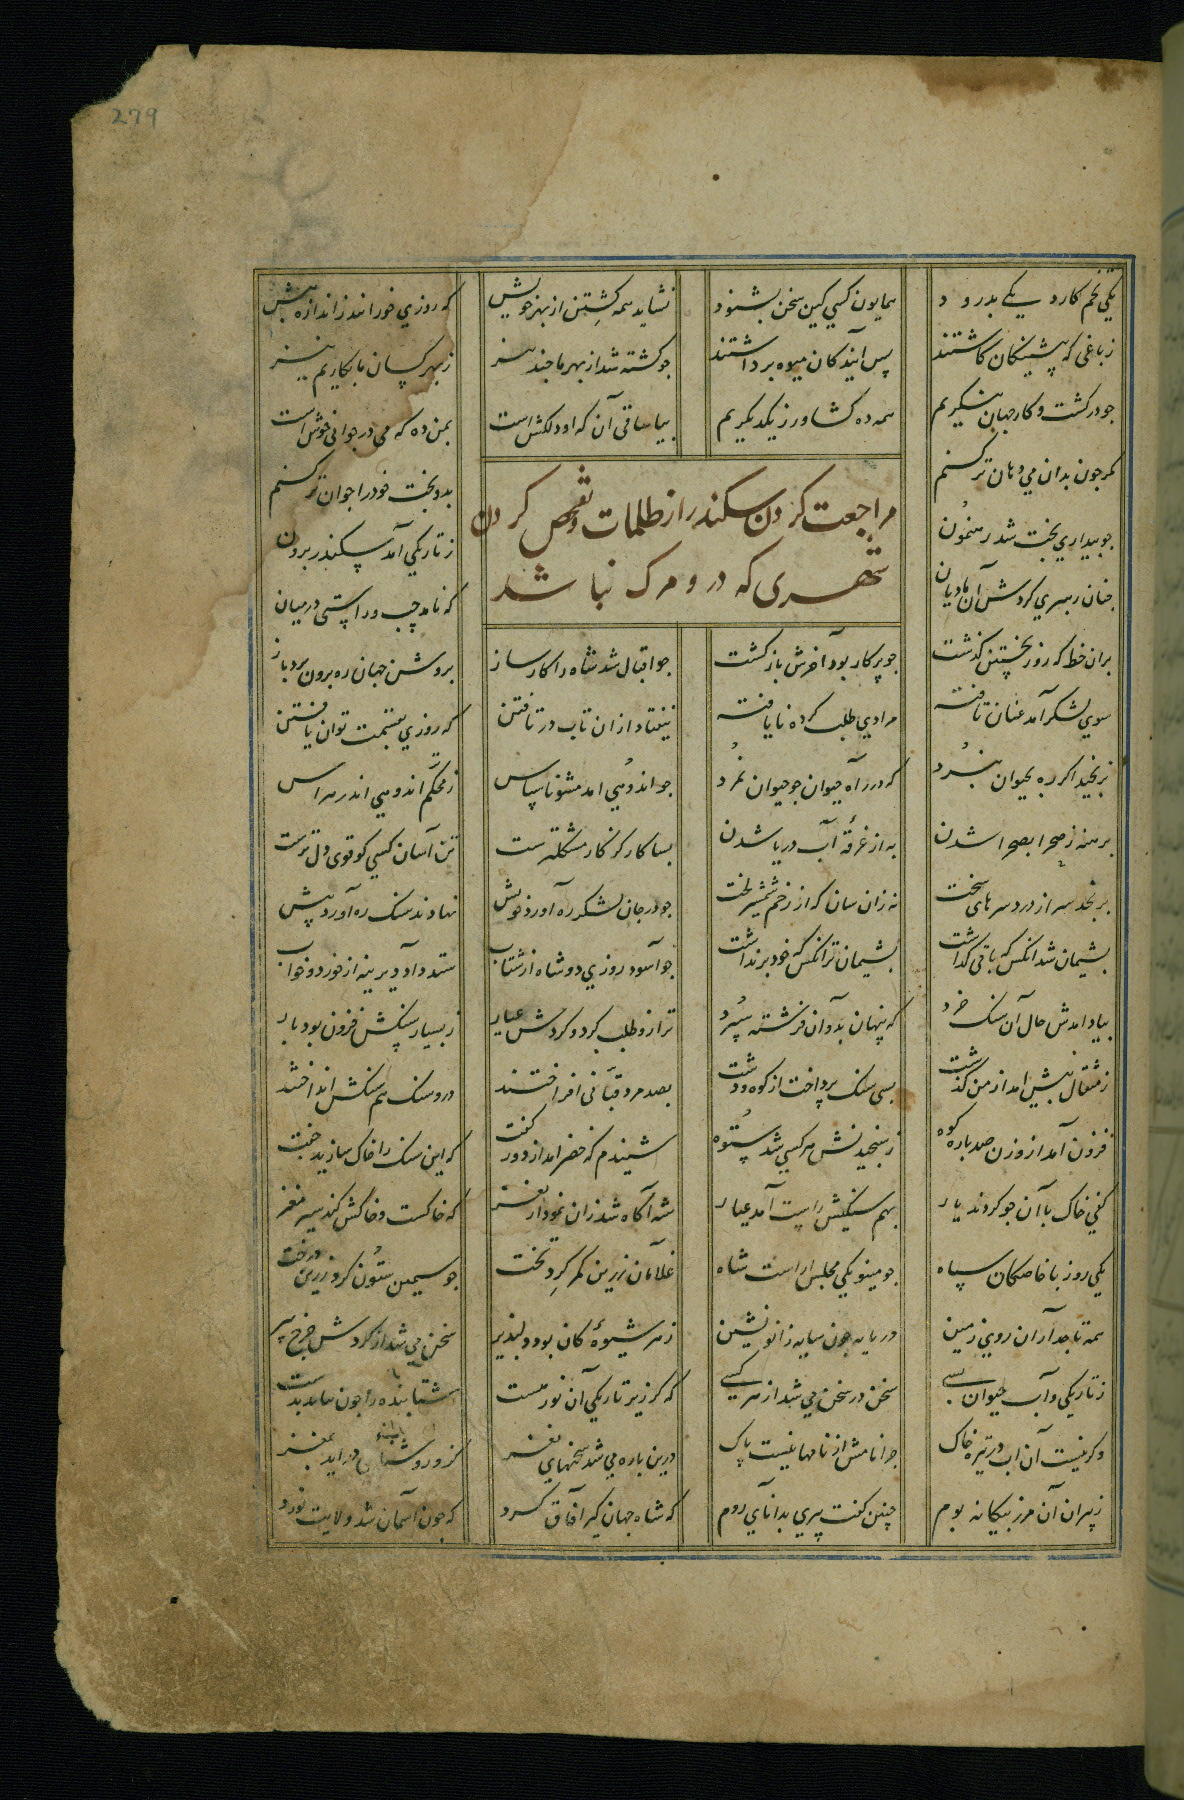 279
یکی تخم کارد یکی بدرود همایون کسی کین سخن بشنود نشاید همه کشتن از بهر خویش که روزی خورانند ز اندازه بیش
ز باغی که پیشینکان کاشتند پس آیندکان میوه برداشتند جو کشته شد از بهر ما جند جیز ز بهر کسان ما بکاریم نیز
جو در کشت و کار جهان بنکریم همه ده کشاورز یکدیکریم بیا ساقی آن که او دلکش است بمن ده که می در جوانی خوش است
مکر جون بدان می دهان تر کنم بدو بخت خود را جوان تر کنم
مراجعت کردن سکندر از ظلمات و تفحص کردن
شهری که درو مرک نباشد
جو بیداری بخت شد رهنمون ز تاریکی آمد سکندر برون
جنان رهبری کردش آن مادیان که نامد جب و راستی در میان
بران خط که روز نخستین کذشت جو پرکار بود آخرش بازکشت جو اقبال شد شاه را کارساز بروشن جهان ره برون برد باز
سوی لشکر آمد عنان تافته مرادی طلب کرده نایافته نیفتاد ازان تاب در تافتن که روزی بقسمت توان یافتن
نرنجید اکر ره بحیوان نبرد که در راه حیوان جو حیوان نمرد جو اندوهی آمد مشو ناسپاس ز محکم اندوهی اندر هراس
برهنه ز صحرا بصحرا شدن به از غرقه آب دریا شدن بسا کار کز کار مشکلترست تن آسان کسی کو قوی دل ترست
برنجد سر از درد سرهای سخت نه زان سان که از زخم شمشیر لخت جو در جان لشکر ره آورد خویش نهادند سنک ره آورد پیش
پشیمان شد آنکس که باقی کذاشت پشیمان تر آنکس که خود برنداشت جو آسود روزی دو شاه از شتاب ستد داد دیرینه از خورد و خواب
بیاد آمدش حال آن سنک خرد که پنهان بدو آن فرشته سپرد ترازو طلب کرد و کردش عیار ز بسیار سنکش فزون بود بار
ز مثقال بیش آمد از من کذشت بسی سنک پرداخت از کوه و دشت بصد مرد قپانی افراختند درو سنک هم سنکش انداختند
فزون آمد از وزن صد باره کوه ز سنجیدنش هر کسی شد ستوه شنیدم که خضر آمد از دور کفت که این سنک را خاک سازید جفت
کفی خاک با آن جو کردند یار بهم سنکیش راست آمد عیار شه آکاه شد زان نمودار نغز که خاکست و خاکش کند سیر مغز
یکی روز با خاصکان سپاه جو مینو یکی مجلس آراست شاه غلامان زرین کمر کرد تخت جو سیمین ستون کرد زرین درخت
همه تاجداران روی زمین در پایه جون سایه زانو نشین ز هر شیوهٔ کان بود دلپذیر سخن می شد از کردش جرخ پیر
ز تاریکی و آب حیوان بسی سخن در سخن می شد از هر کسی که کر زیر تاریکی آن نور هست شتابنده را جون نیاید بدست
وکر نیست آن آب در تیره خاک جرا نامش از نامها نیست پاک درین باره می شد سخنهای نغز کزو روشنایی درآید بمغز
ز پیران آن مرز بیکانه بوم جنین کفت پیری بدانای روم که شاه جهان کیر آفاق کرد که جون آسمان شد ولایت نورد